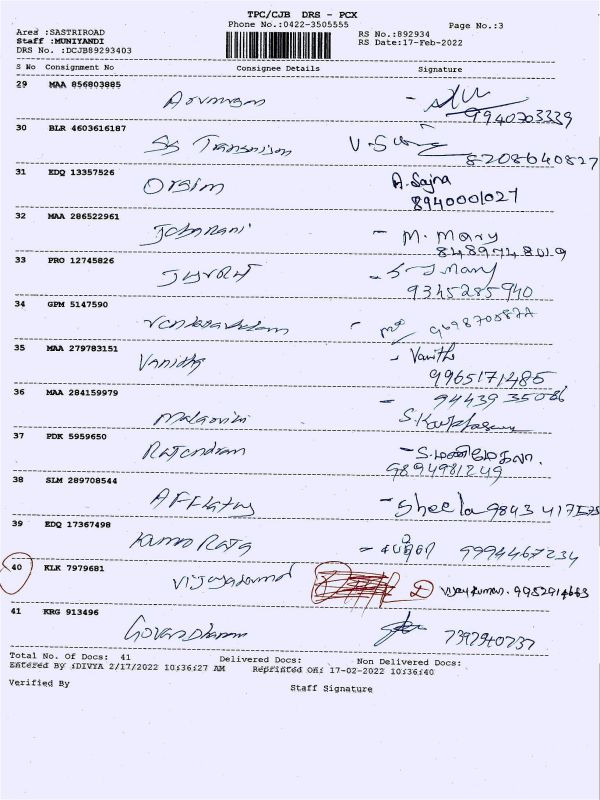 TPC/CJB DRS - PCX
Phone No.:0422-3505555
Page No.:3
Area :SASTRIROAD
Staff :MUNIYANDI
DRS No. :DCJB89293403
RS No.:892934
RS Date:17-Feb-2022
S No Consignment No Consignee Details Signature
29 MAA 856803885
Arumugam
9940703339
30 BLR 4603616187
SS Transmission
8208640827
31 EDQ 13357526
A. Sajna
8940001027
32 MAA 286522961
M. Mary
8489748019
33 PRO 12745826
S J Mary
9345285940
34 GPM 5147590
35 MAA 279783151
Vanitha
9965171485
36 MAA 284159979
94439 35086
37 PDK 5959650
Rajendran
9894981249
38 SLM 289708544
Sheela 98434
39 EDQ 17367498
Kumar Raja
9994467234
40 KLK 7979681
Vijay Kumar. 9952914663
41 KRG 913496
7392940737
Total No. Of Docs: 41 Delivered Docs: Non Delivered Docs:
Entered By :DIVYA 2/17/2022 10:36:27 AM Reprinted On: 17-02-2022 10:36:40
Verified By
Staff Signature